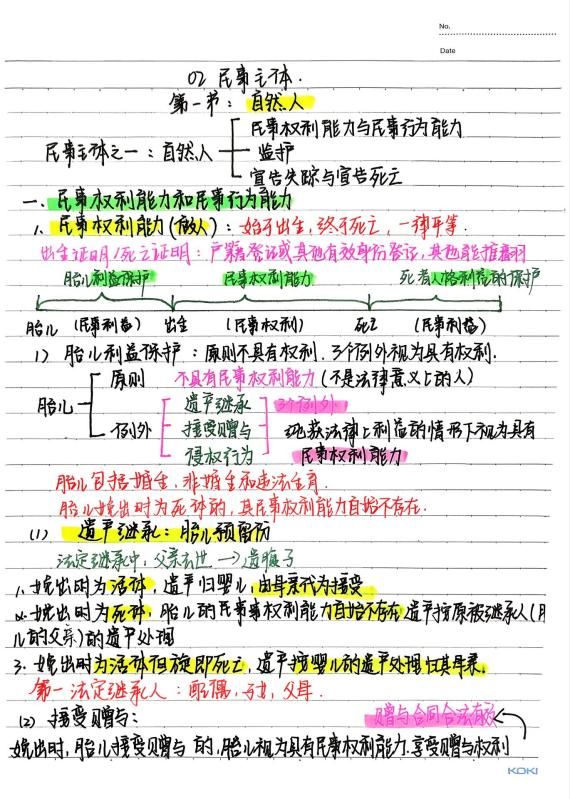 No.
Date
02 民事主体.
第一节：自然人
民事权利能力与民事行为能力
民事主体之一：自然人 监护
宣告失踪与宣告死亡
一、民事权利能力和民事行为能力
1. 民事权利能力(做人)：始于出生,终于死亡,一律平等.
出生证明/死亡证明：户籍登记或其他有效身份登记,其他能推翻
胎儿利益保护 民事权利能力 死者人格利益的保护
胎儿 (民事利益) 出生 (民事权利) 死亡 (民事利益)
1) 胎儿利益保护：原则不具有权利.3个例外视为具有权利.
原则 不具有民事权利能力(不是法律意义上的人)
胎儿 遗产继承 3个例外
例外 接受赠与 现获法律上利益的情形下视为具有
侵权行为 民事权利能力
胎儿包括婚生,非婚生和违法生育.
胎儿娩出时为死体的,其民事权利能力自始不存在.
(1) 遗产继承：胎儿预留份
法定继承中,父亲去世→遗腹子
1. 娩出时为活体,遗产归婴儿,由母亲代为接受
2. 娩出时为死体,胎儿的民事事权利能力自始不存在遗产按原被继承人(胎
儿的父亲)的遗产处理
3. 娩出时为活体但旋即死亡,遗产按婴儿的遗产处理归其母亲.
第一法定继承人：配偶,子女,父母.
(2) 接受赠与： 赠与合同合法有效
娩出时,胎儿接受赠与的,胎儿视为具有民事权利能力.享受赠与权利
KOKI